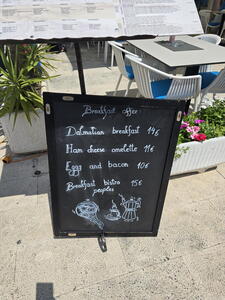 Breakfast offer
Dalmatian breakfast 14€
Ham cheese omelette 11€
Egg and bacon 10€
Breakfast bistro 15€
peoples